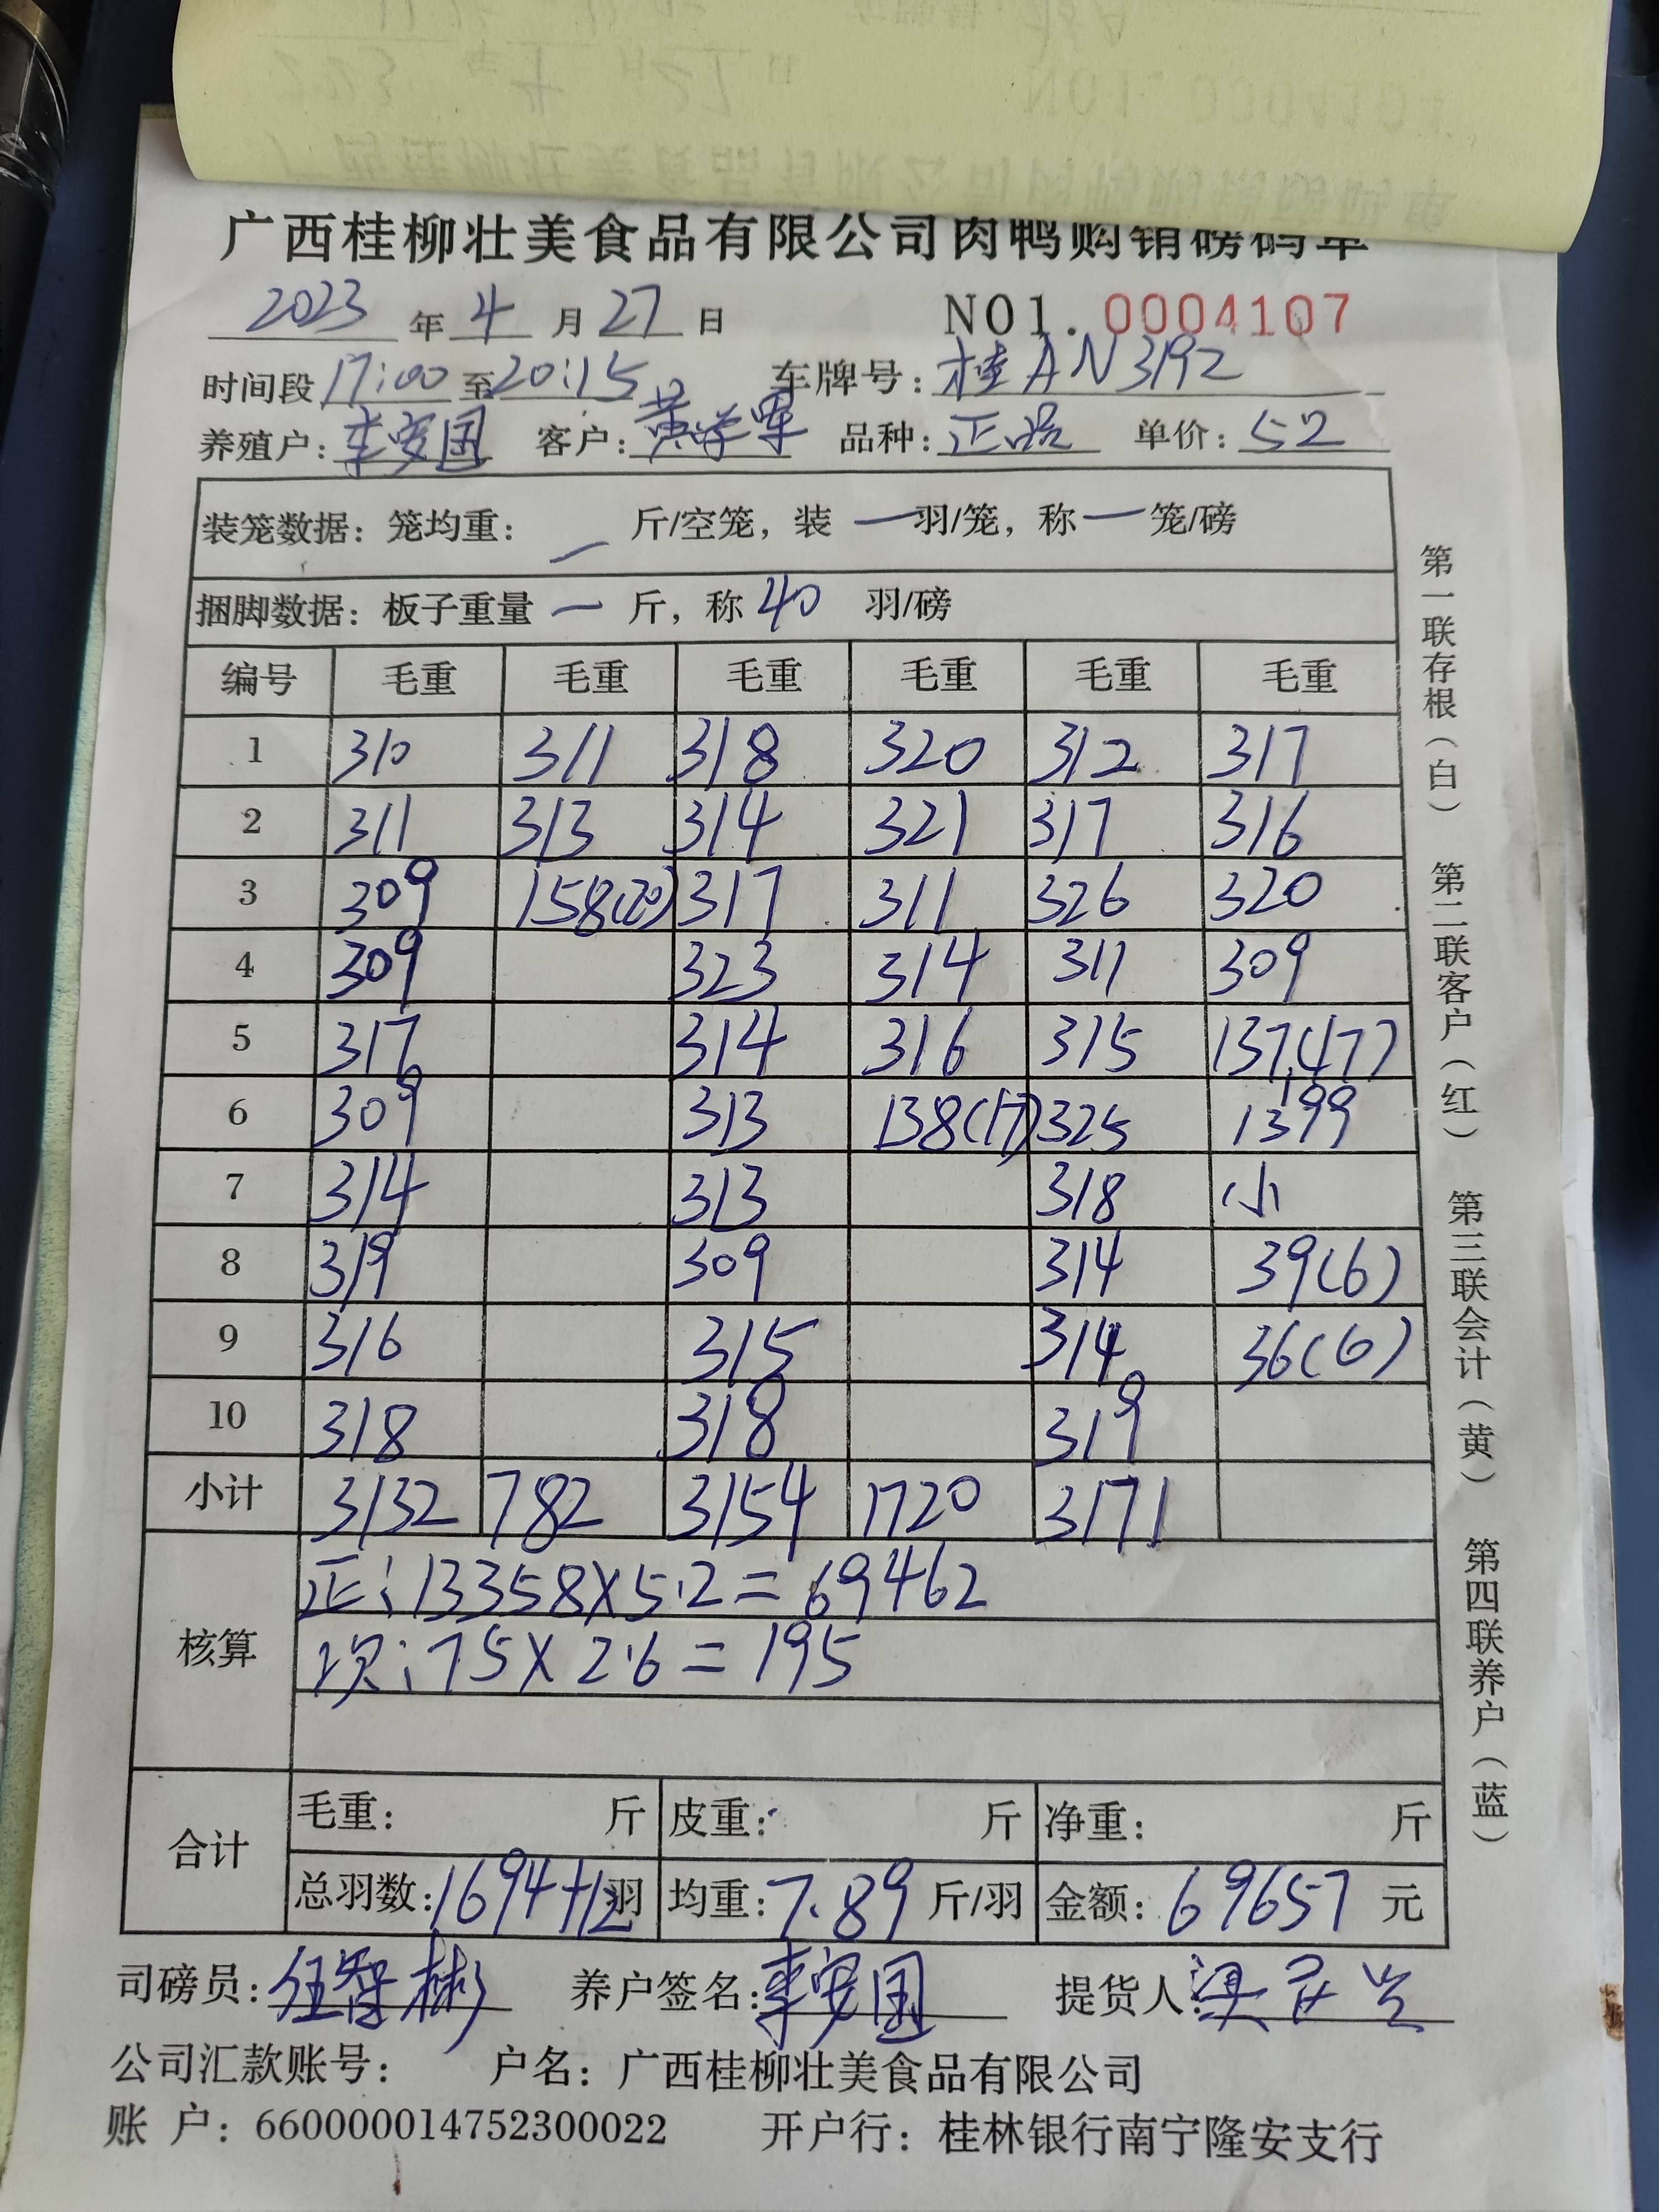 广西桂柳壮美食品有限公司肉鸭购销磅码单
2023 年 4 月 27 日 NO1. 0004107
时间段 17:00 至 20:15 车牌号: 桂AN3192
养殖户: 李安国 客户: 黄学军 品种: 正品 单价: 52
装笼数据: 笼均重: 一 斤/空笼, 装 一 羽/笼, 称 一 笼/磅
捆脚数据: 板子重量 一 斤, 称 40 羽/磅
编号 毛重 毛重 毛重 毛重 毛重 毛重
1 310 311 318 320 312 317
2 311 313 314 321 317 316
3 309 158(20) 317 311 326 320
4 309 323 314 311 309
5 317 314 316 315 137(17)
6 309 313 138(17) 325 1399
7 314 313 318 小
8 319 309 314 39(6)
9 316 315 314 36(6)
10 318 318 319
小计 3132 782 3154 1720 3171
核算
正: 13358×5.2=69462
次: 75×2.6=195
合计
毛重: 斤 皮重: 斤 净重: 斤
总羽数: 1694+12 羽 均重: 7.89 斤/羽 金额: 69657 元
司磅员: 伍智彬 养户签名: 李安国 提货人:
公司汇款账号: 户名: 广西桂柳壮美食品有限公司
账 户: 660000014752300022 开户行: 桂林银行南宁隆安支行
第一联存根(白) 第二联客户(红) 第三联会计(黄) 第四联养户(蓝)